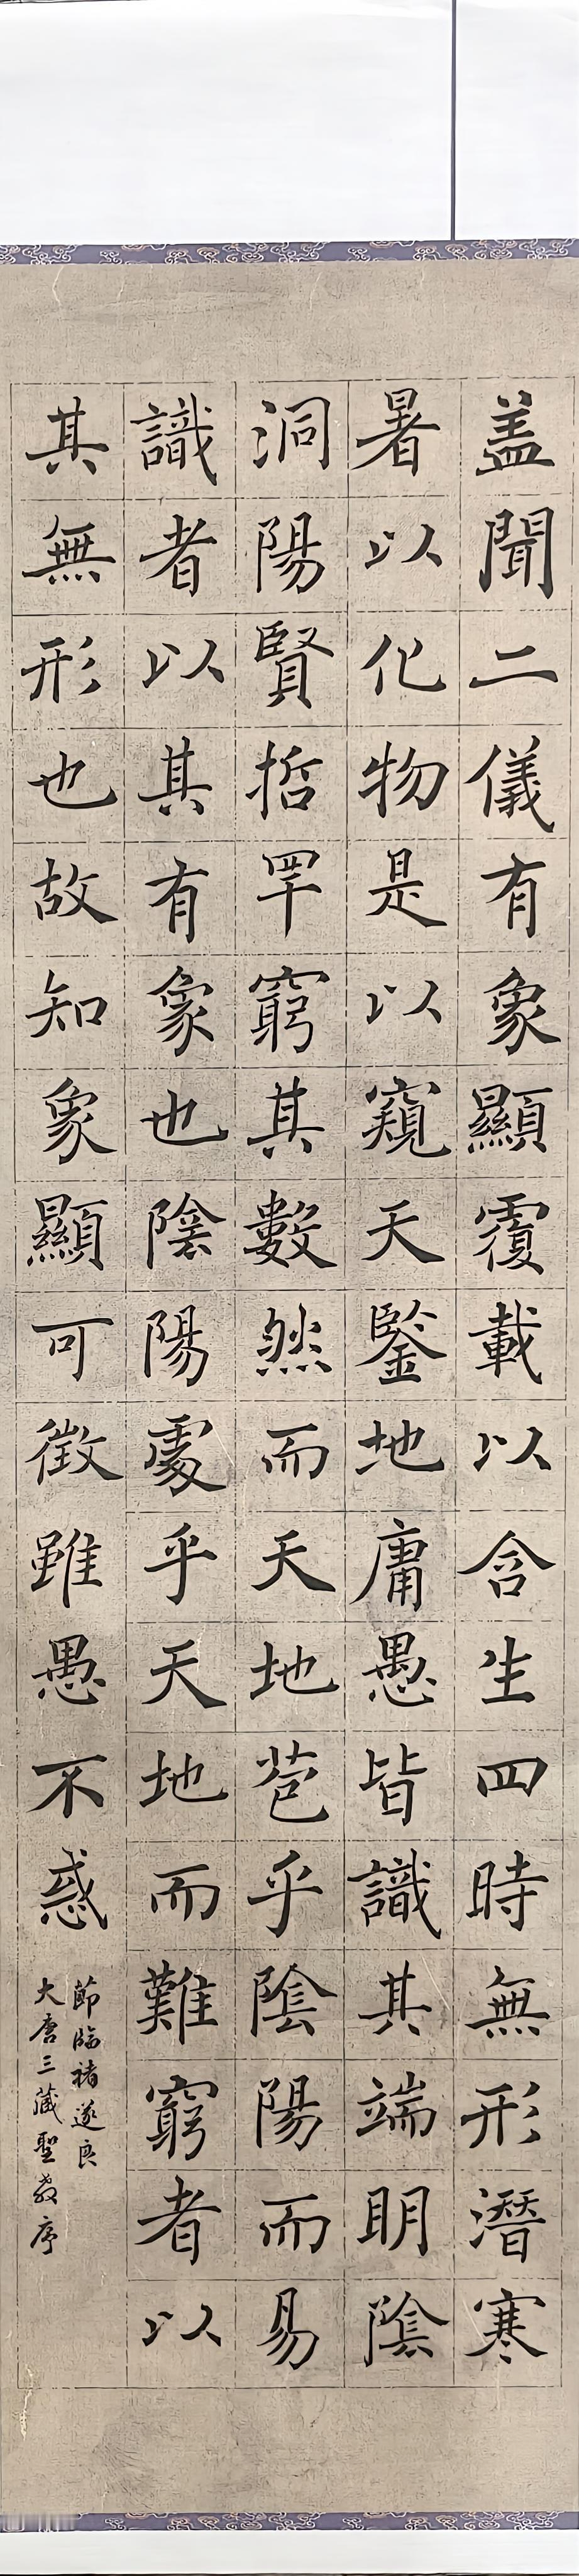 盖聞二儀有象顯覆載以含生四時無形潛寒
暑以化物是以窺天鑒地庸愚皆識其端明陰
洞陽賢哲罕窮其數然而天地苞乎陰陽而易
識者以其有象也陰陽處乎天地而難窮者以
其無形也故知象顯可徵雖愚不惑
節臨褚遂良
大唐三藏聖教序